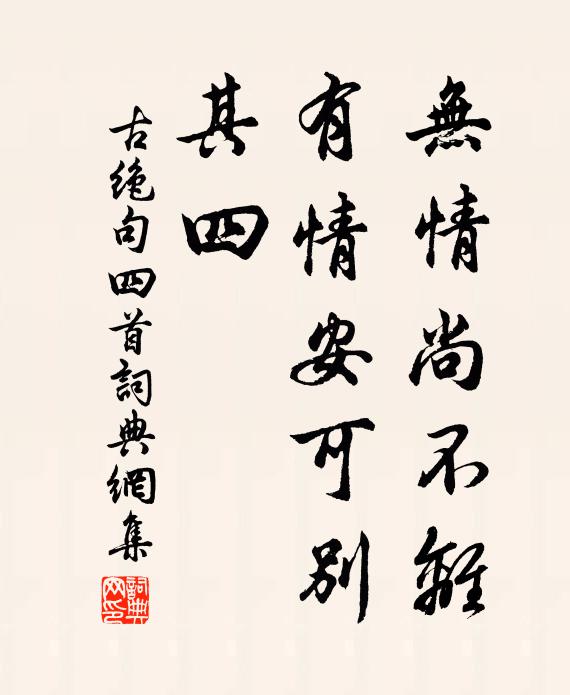 無情尚不離
有情安可別
其四
古絕句四首詞典網集
詞典網印